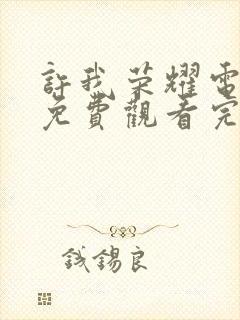 許我荣耀電
免費觀看完
錢錫良